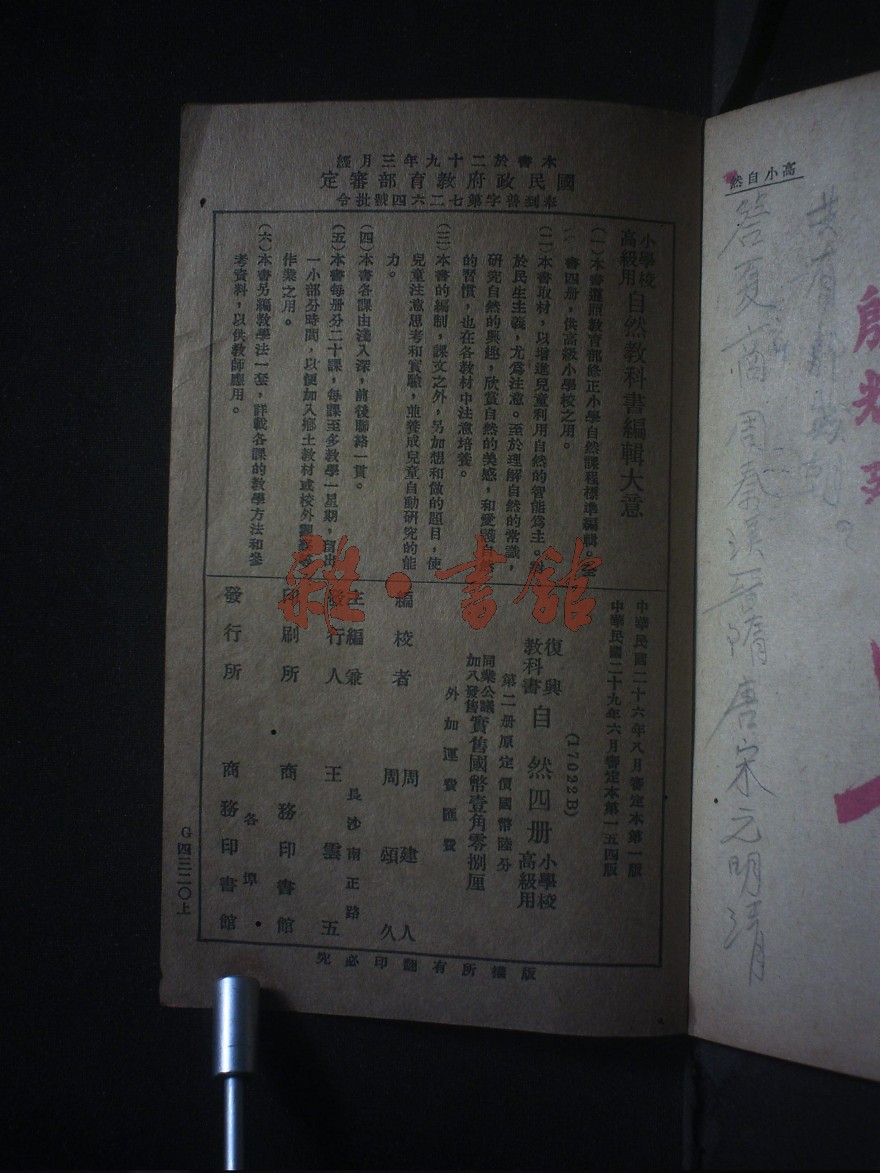 高小自然
答夏商周秦
隋唐宋元明清
本書於二十九年三月經
國民政府教育部審定
奉到普字第七二六四號批令
小學校高級用 自然教科書編輯大意
(一)本書遵照教育部修正小學自然課程標準編輯。全
書四册,供高級小學校之用。
(二)本書取材,以增進兒童利用自然的智能爲主。對
於民生主義,尤爲注意。至於理解自然的常識,
研究自然的興趣,欣賞自然的美感,和愛護自然
的習慣,也在各教材中注意培養。
(三)本書的編制,課文之外,另加想和做的題目,使
兒童注意思考和實驗,並養成兒童自動研究的能
力。
(四)本書各課由淺入深,前後聯絡一貫。
(五)本書每册分二十課,每課至多教學一星期,留出
一小部分時間,以便加入鄉土教材或校外觀察等
作業之用。
(六)本書另編教學法一套,詳載各課的教學方法和參
考資料,以供教師應用。
中華民國二十六年八月審定本第一版
中華民國二十九年六月審定本第一五四版
(17022B)
復興教科書 自然四册 小學校高級用
第二册原定價國幣陸分
同業公議加八發售 實售國幣壹角零捌厘
外加運費匯費
編校者 周建人 周頌久
主編兼發行人 長沙南正路 王雲五
印刷所 商務印書館
發行所 各埠 商務印書館
版權所有翻印必究
G四三二〇上
雜·書館